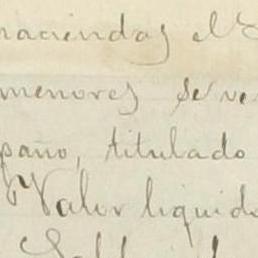 haciendas el
menores se ve
paño, titulado
Valor liquido